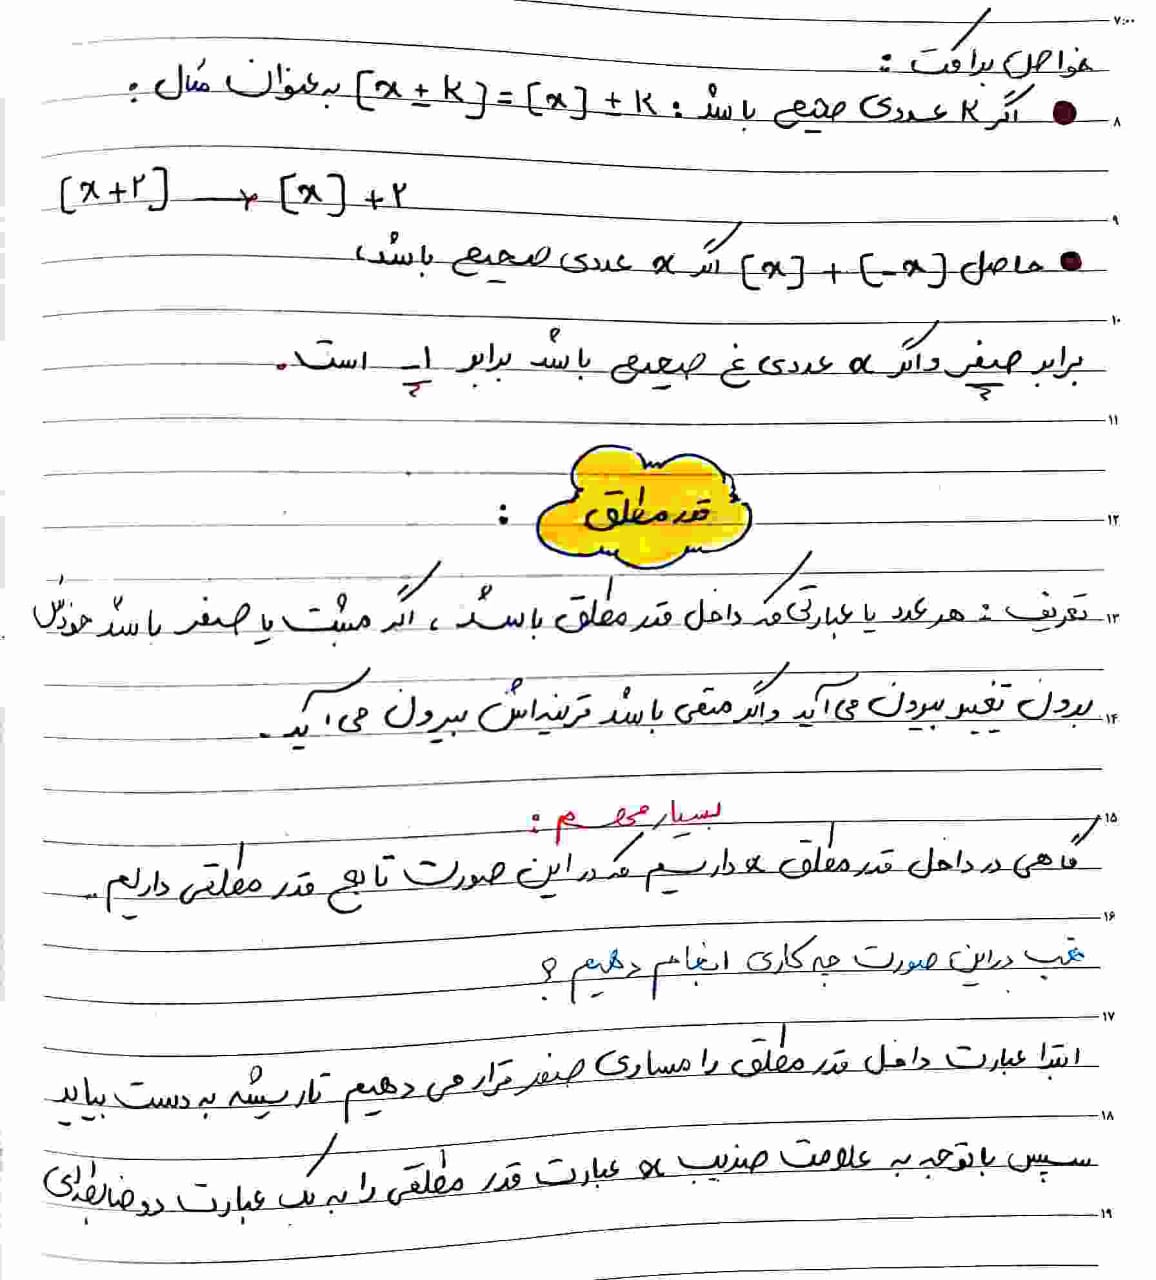 ۷:۰۰
خواص براکت :
● اگر K عددی صحیح باشد : [x ± K] = [x] ± K به عنوان مثال :
۸
[x+۲] → [x] + ۲
۹
● حاصل [x] + [-x] اگر x عددی صحیح باشد،
۱۰
برابر صفر و اگر x عددی غ صحیح باشد برابر -۱ است.
۱۱
قدر مطلق :
۱۲
تعریف : هر عدد یا عبارتی که داخل قدر مطلق باشد ، اگر مثبت یا صفر باشد خودش
۱۳
بدون تغییر بیرون می آید و اگر منفی باشد قرینه اش بیرون می آید .
۱۴
بسیار مهم :
۱۵
گاهی در داخل قدر مطلق x داریم که در این صورت تابع قدر مطلقی داریم ..
۱۶
خب در این صورت چه کاری انجام دهیم ؟
۱۷
ابتدا عبارت داخل قدر مطلق را مساوی صفر قرار می دهیم تا ریشه به دست بیاید
۱۸
سپس با توجه به علامت ضریب x عبارت قدر مطلقی را به یک عبارت دو ضابطه ای
۱۹